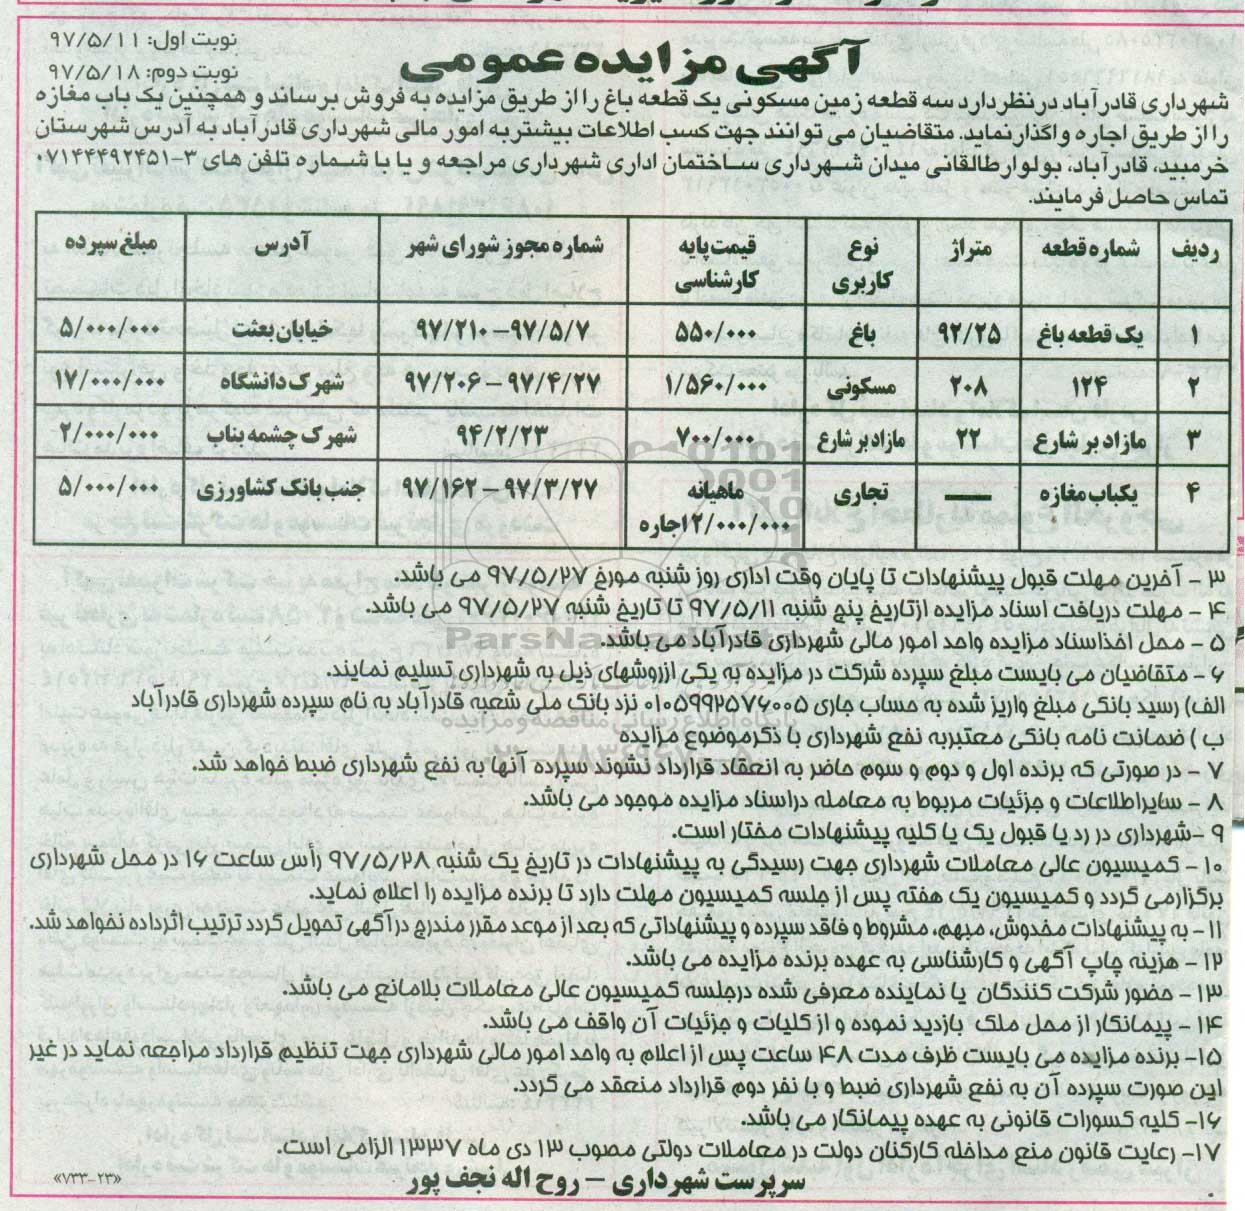 نوبت اول: ۹۷/۵/۱۱
آگهی مزایده عمومی
نوبت دوم: ۹۷/۵/۱۸
شهرداری قادرآباد در نظر دارد سه قطعه زمین مسکونی یک قطعه باغ را از طریق مزایده به فروش برساند و همچنین یک باب مغازه
را از طریق اجاره واگذار نماید. متقاضیان می توانند جهت کسب اطلاعات بیشتر به امور مالی شهرداری قادرآباد به آدرس شهرستان
خرمبید، قادرآباد، بولوار طالقانی میدان شهرداری ساختمان اداری شهرداری مراجعه و یا با شماره تلفن های ۳-۰۷۱۴۴۴۹۲۴۵۱
تماس حاصل فرمایند.
ردیف شماره قطعه متراژ نوع کاربری قیمت پایه کارشناسی شماره مجوز شورای شهر آدرس مبلغ سپرده
۱ یک قطعه باغ ۹۲/۲۵ باغ ۵۵۰/۰۰۰ ۹۷/۲۱۰-۹۷/۵/۷ خیابان بعثت ۵/۰۰۰/۰۰۰
۲ ۱۲۴ ۲۰۸ مسکونی ۱/۵۶۰/۰۰۰ ۹۷/۲۰۶-۹۷/۴/۲۷ شهرک دانشگاه ۱۷/۰۰۰/۰۰۰
۳ مازاد بر شارع ۲۲ مازاد بر شارع ۷۰۰/۰۰۰ ۹۴/۲/۲۳ شهرک چشمه بناب ۲/۰۰۰/۰۰۰
۴ یکباب مغازه — تجاری ماهیانه ۱۲/۰۰۰/۰۰۰اجاره ۹۷/۱۶۲-۹۷/۳/۲۷ جنب بانک کشاورزی ۵/۰۰۰/۰۰۰
۳ - آخرین مهلت قبول پیشنهادات تا پایان وقت اداری روز شنبه مورخ ۹۷/۵/۲۷ می باشد.
۴ - مهلت دریافت اسناد مزایده ازتاریخ پنج شنبه ۹۷/۵/۱۱ تا تاریخ شنبه ۹۷/۵/۲۷ می باشد.
۵ - محل اخذاسناد مزایده واحد امور مالی شهرداری قادرآباد می باشد.
۶ - متقاضیان می بایست مبلغ سپرده شرکت در مزایده به یکی ازروشهای ذیل به شهرداری تسلیم نمایند.
الف) رسید بانکی مبلغ واریز شده به حساب جاری ۰۱۰۵۹۹۲۵۷۶۰۰۵ نزد بانک ملی شعبه قادرآباد به نام سپرده شهرداری قادرآباد
ب ) ضمانت نامه بانکی معتبربه نفع شهرداری با ذکرموضوع مزایده
۷ - در صورتی که برنده اول و دوم و سوم حاضر به انعقاد قرارداد نشوند سپرده آنها به نفع شهرداری ضبط خواهد شد.
۸ - سایراطلاعات و جزئیات مربوط به معامله دراسناد مزایده موجود می باشد.
۹ -شهرداری در رد یا قبول یک یا کلیه پیشنهادات مختار است.
۱۰ - کمیسیون عالی معاملات شهرداری جهت رسیدگی به پیشنهادات در تاریخ یک شنبه ۹۷/۵/۲۸ رأس ساعت ۱۶ در محل شهرداری
برگزارمی گردد و کمیسیون یک هفته پس از جلسه کمیسیون مهلت دارد تا برنده مزایده را اعلام نماید.
۱۱ - به پیشنهادات مخدوش، مبهم، مشروط و فاقد سپرده و پیشنهاداتی که بعد از موعد مقرر مندرج درآگهی تحویل گردد ترتیب اثرداده نخواهد شد.
۱۲ - هزینه چاپ آگهی و کارشناسی به عهده برنده مزایده می باشد.
۱۳ - حضور شرکت کنندگان یا نماینده معرفی شده درجلسه کمیسیون عالی معاملات بلامانع می باشد.
۱۴ - پیمانکار از محل ملک بازدید نموده و از کلیات و جزئیات آن واقف می باشد.
۱۵- برنده مزایده می بایست ظرف مدت ۴۸ ساعت پس از اعلام به واحد امور مالی شهرداری جهت تنظیم قرارداد مراجعه نماید در غیر
این صورت سپرده آن به نفع شهرداری ضبط و با نفر دوم قرارداد منعقد می گردد.
۱۶- کلیه کسورات قانونی به عهده پیمانکار می باشد.
۱۷- رعایت قانون منع مداخله کارکنان دولت در معاملات دولتی مصوب ۱۳ دی ماه ۱۳۳۷ الزامی است.
سرپرست شهرداری - روح اله نجف پور
«۷۳۳-۲۳»
ParsNamad
پایگاه اطلاع رسانی مناقصه و مزایده